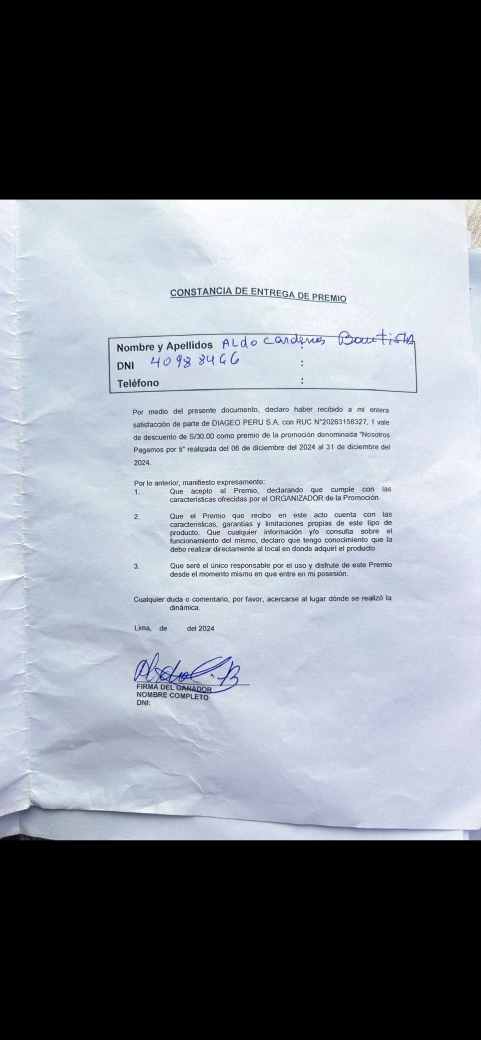 CONSTANCIA DE ENTREGA DE PREMIO
Nombre y Apellidos : ALdo Cardenas Bautista
DNI 40988466 :
Teléfono :
Por medio del presente documento, declaro haber recibido a mi entera
satisfacción de parte de DIAGEO PERU S.A. con RUC N°20263158327, 1 vale
de descuento de S/30.00 como premio de la promoción denominada "Nosotros
Pagamos por ti" realizada del 06 de diciembre del 2024 al 31 de diciembre del
2024.
Por lo anterior, manifiesto expresamente:
1. Que acepto el Premio, declarando que cumple con las
características ofrecidas por el ORGANIZADOR de la Promoción
2. Que el Premio que recibo en este acto cuenta con las
características, garantías y limitaciones propias de este tipo de
producto. Que cualquier información y/o consulta sobre el
funcionamiento del mismo, declaro que tengo conocimiento que la
debo realizar directamente al local en donde adquirí el producto
3. Que seré el único responsable por el uso y disfrute de este Premio
desde el momento mismo en que entre en mi posesión.
Cualquier duda o comentario, por favor, acercarse al lugar dónde se realizó la
dinámica.
Lima, de del 2024
FIRMA DEL GANADOR
NOMBRE COMPLETO
DNI: